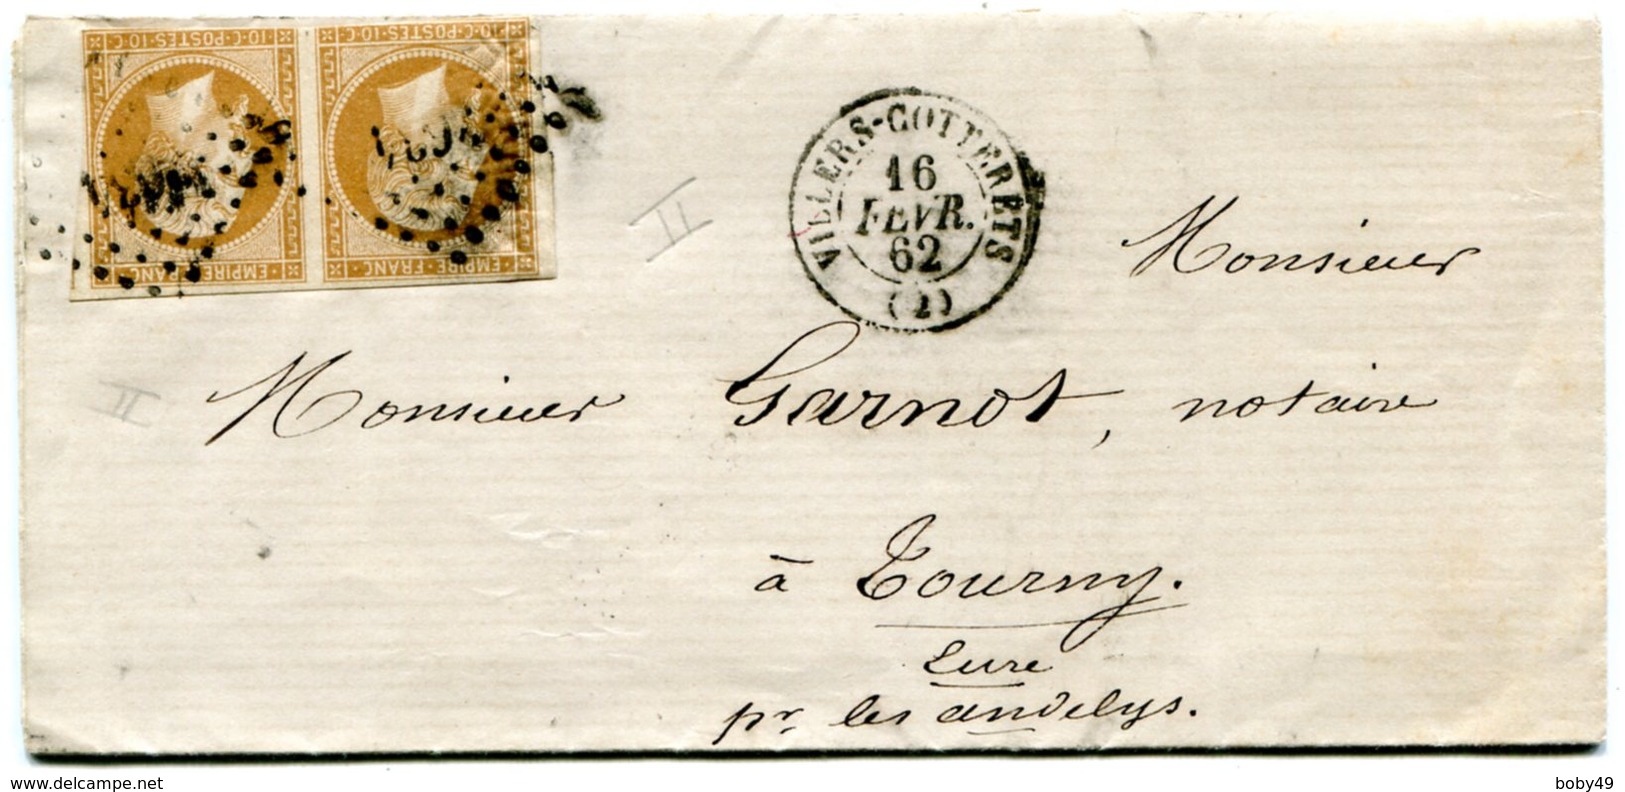 10·C·POSTES·10·C 10·C·POSTES·10·C
EMPIRE·FRANC· EMPIRE·FRANC·
VILLERS-COTTERETS
16
FEVR.
62
(2)
II
II
Monsieur
Monsieur Garnot, notaire
à Tourny.
Eure
pr les andelys.
delcampe.net
boby49